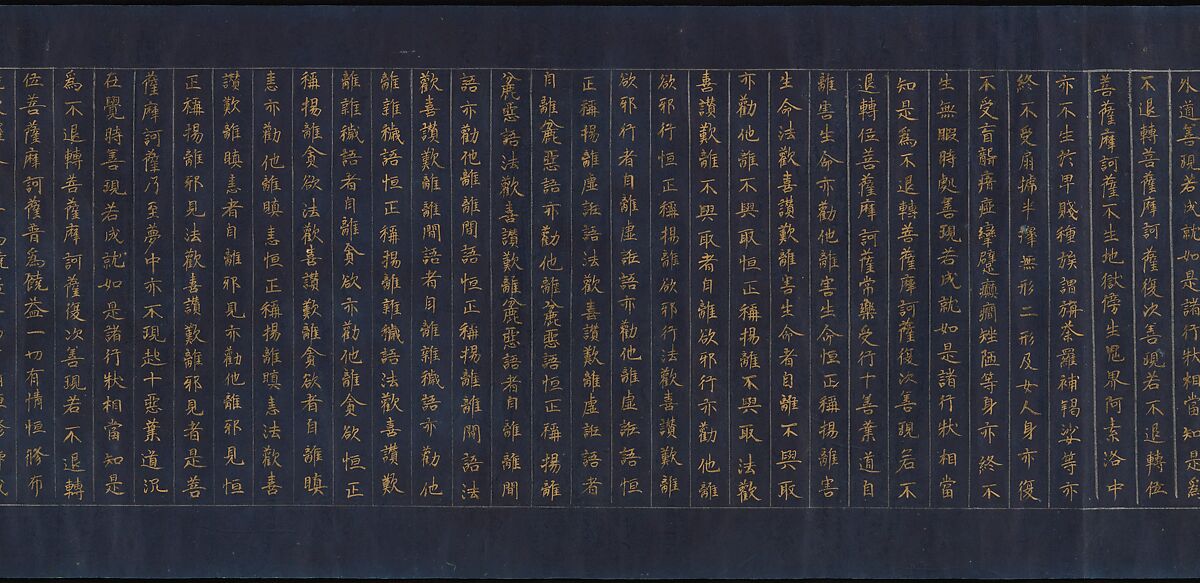 外道善現若成就如是諸行狀相當知是為
不退轉菩薩摩訶薩復次善現若不退轉位
菩薩摩訶薩不生地獄傍生鬼界阿素洛中
亦不生於卑賤種族謂旃荼羅補羯娑等亦
終不受扇搋半擇無形二形及女人身亦復
不受盲聾瘖瘂攣躄癲癇矬陋等身亦終不
生無暇時處善現若成就如是諸行狀相當
知是為不退轉菩薩摩訶薩復次善現若不
退轉位菩薩摩訶薩常樂受行十善業道自
離害生命亦勸他離害生命恒正稱揚離害
生命法歡喜讚歎離害生命者自離不與取
亦勸他離不與取恒正稱揚離不與取法歡
喜讚歎離不與取者自離欲邪行亦勸他離
欲邪行恒正稱揚離欲邪行法歡喜讚歎離
欲邪行者自離虛誑語亦勸他離虛誑語恒
正稱揚離虛誑語法歡喜讚歎離虛誑語者
自離麁惡語亦勸他離麁惡語恒正稱揚離
麁惡語法歡喜讚歎離麁惡語者自離離間
語亦勸他離離間語恒正稱揚離離間語法
歡喜讚歎離離間語者自離雜穢語亦勸他
離雜穢語恒正稱揚離雜穢語法歡喜讚歎
離雜穢語者自離貪欲亦勸他離貪欲恒正
稱揚離貪欲法歡喜讚歎離貪欲者自離瞋
恚亦勸他離瞋恚恒正稱揚離瞋恚法歡喜
讚歎離瞋恚者自離邪見亦勸他離邪見恒
正稱揚離邪見法歡喜讚歎離邪見者是菩
薩摩訶薩乃至夢中亦不現起十惡業道況
在覺時善現若成就如是諸行狀相當知是
為不退轉菩薩摩訶薩復次善現若不退轉
位菩薩摩訶薩普為饒益一切有情恒修布